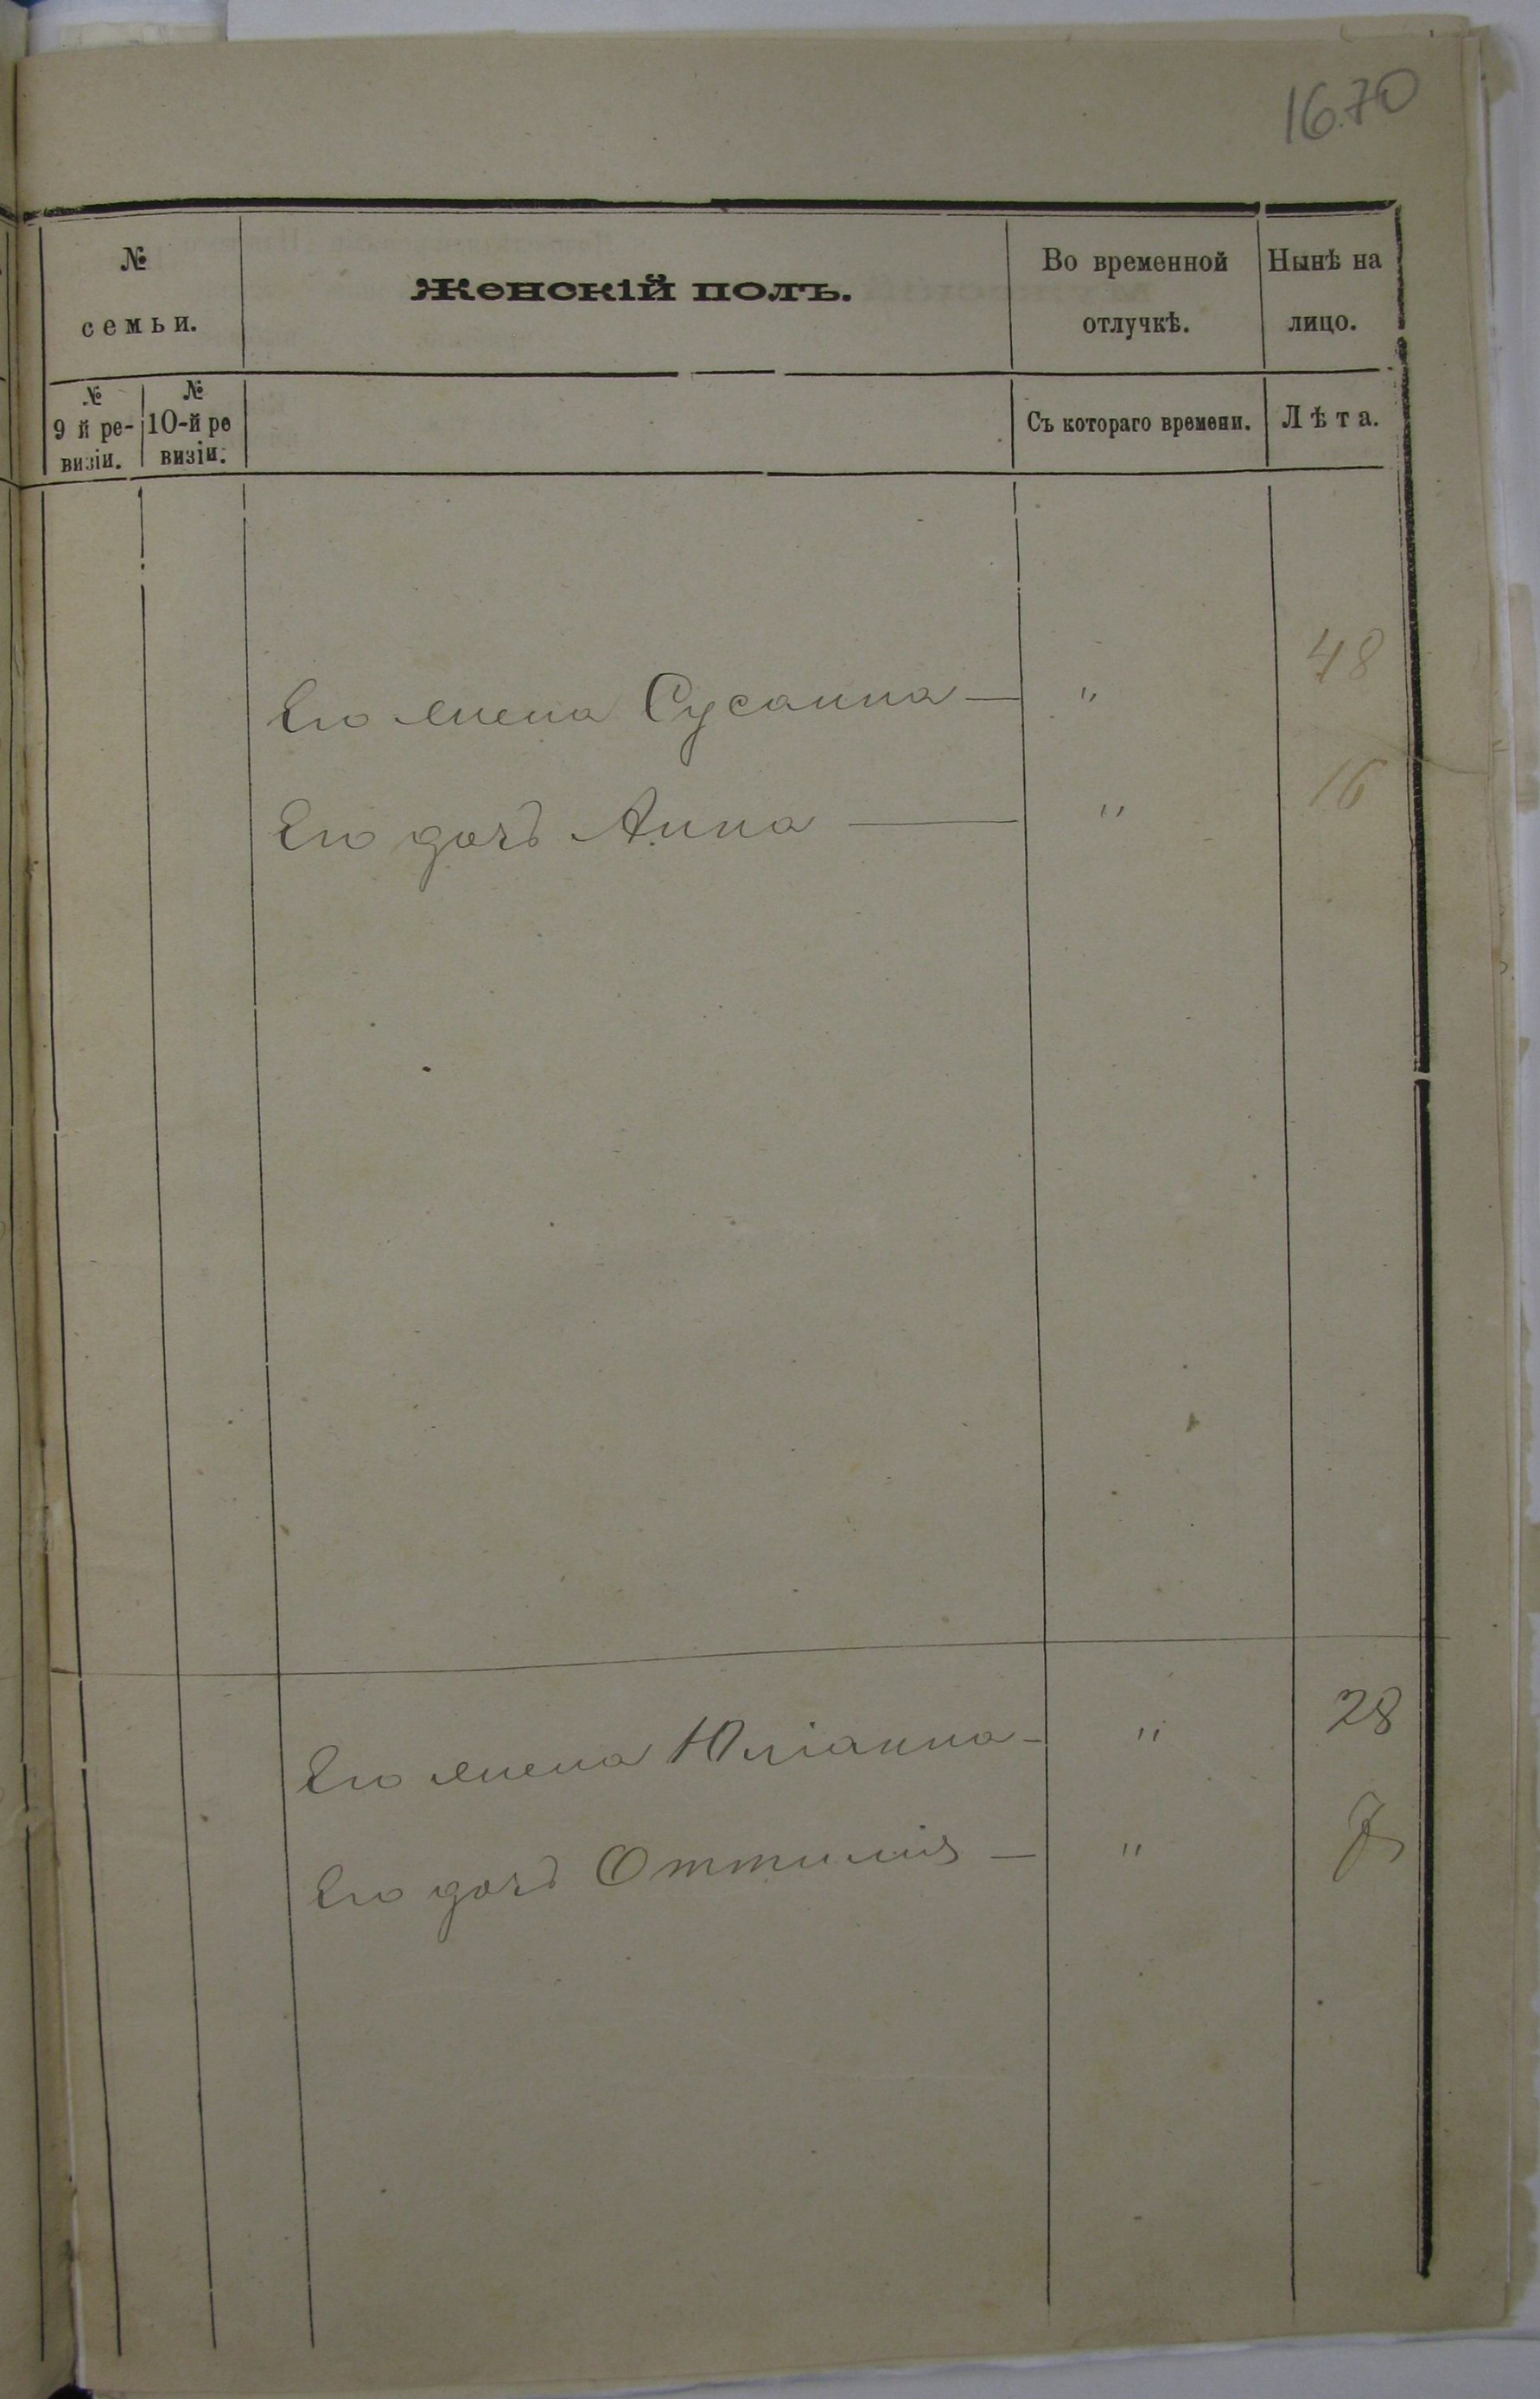 1670
№ семьи.
Женскій полъ.
Во временной отлучкѣ.
Нынѣ на лицо.
№ 9 й ре-визіи.
№ 10-й ре визіи.
Съ котораго времени.
Лѣта.
Его жена Сусанна — " 48
Его дочь Анна — " 16
Его жена Юліанна - " 28
Его дочь Оттилія — "